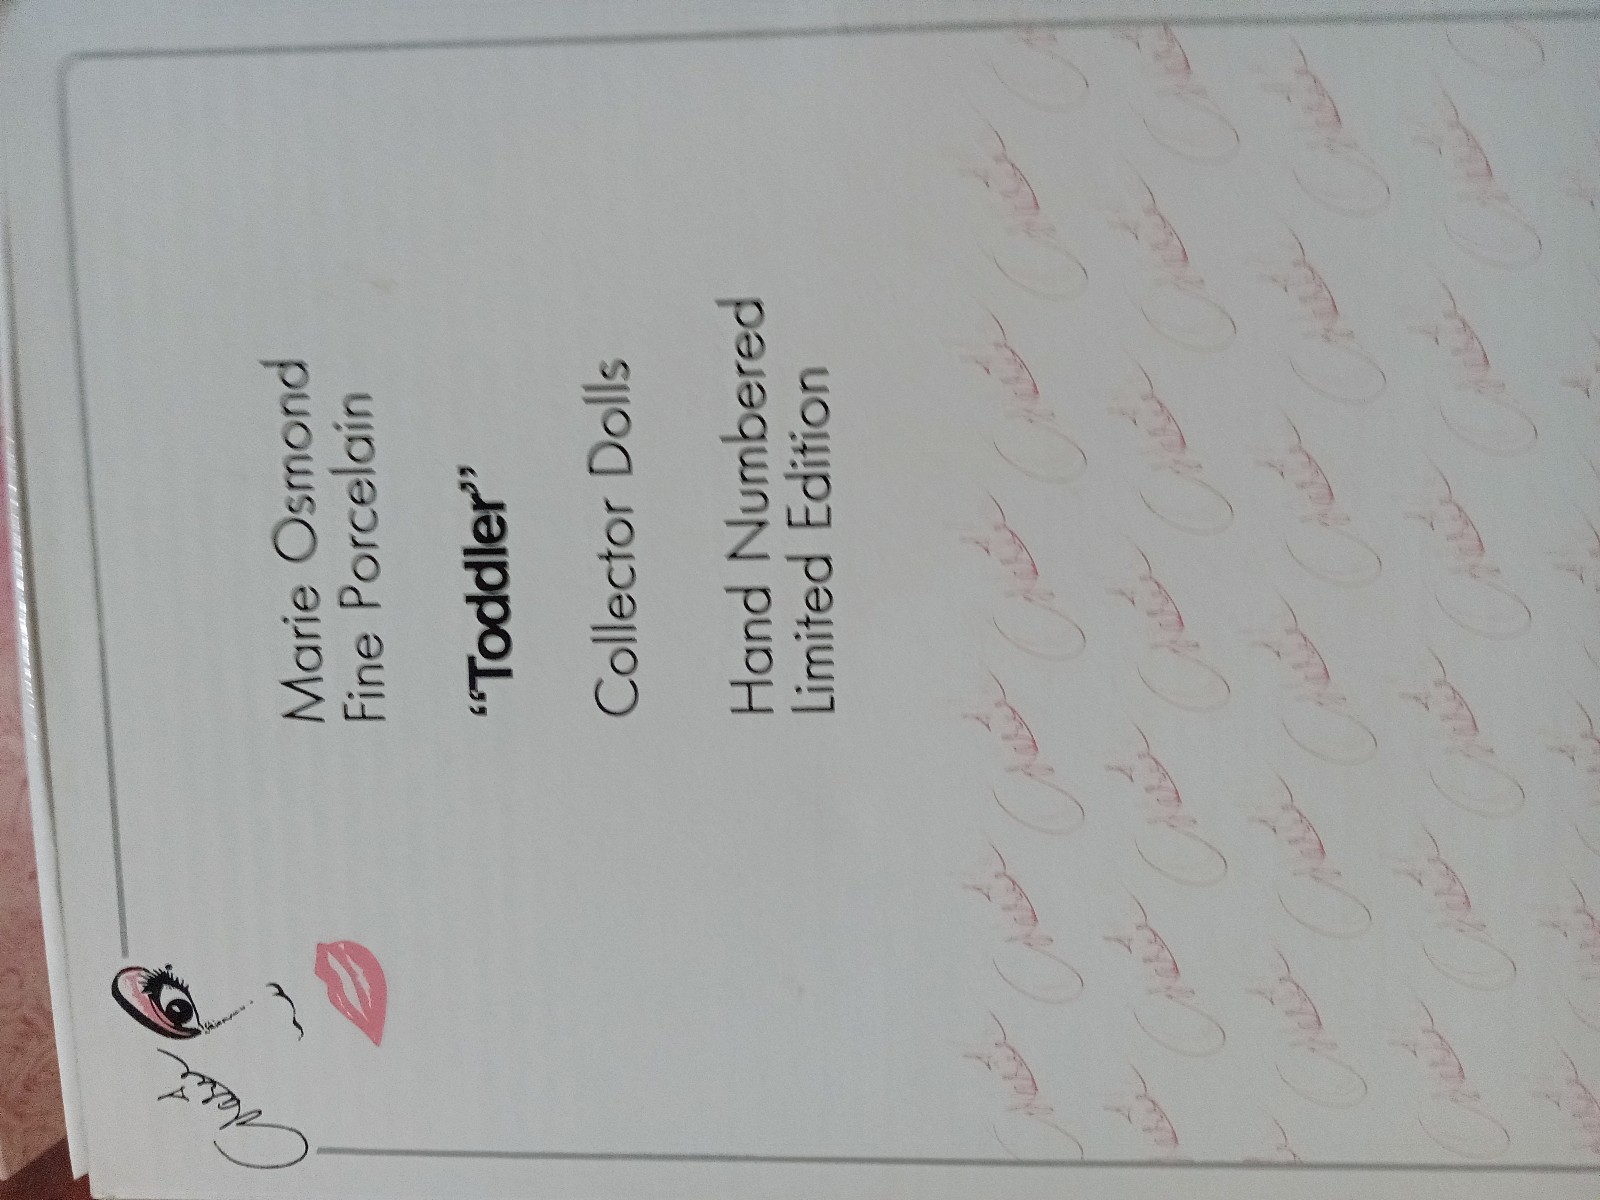 Marie
Marie Osmond
Fine Porcelain
“Toddler”
Collector Dolls
Hand Numbered
Limited Edition